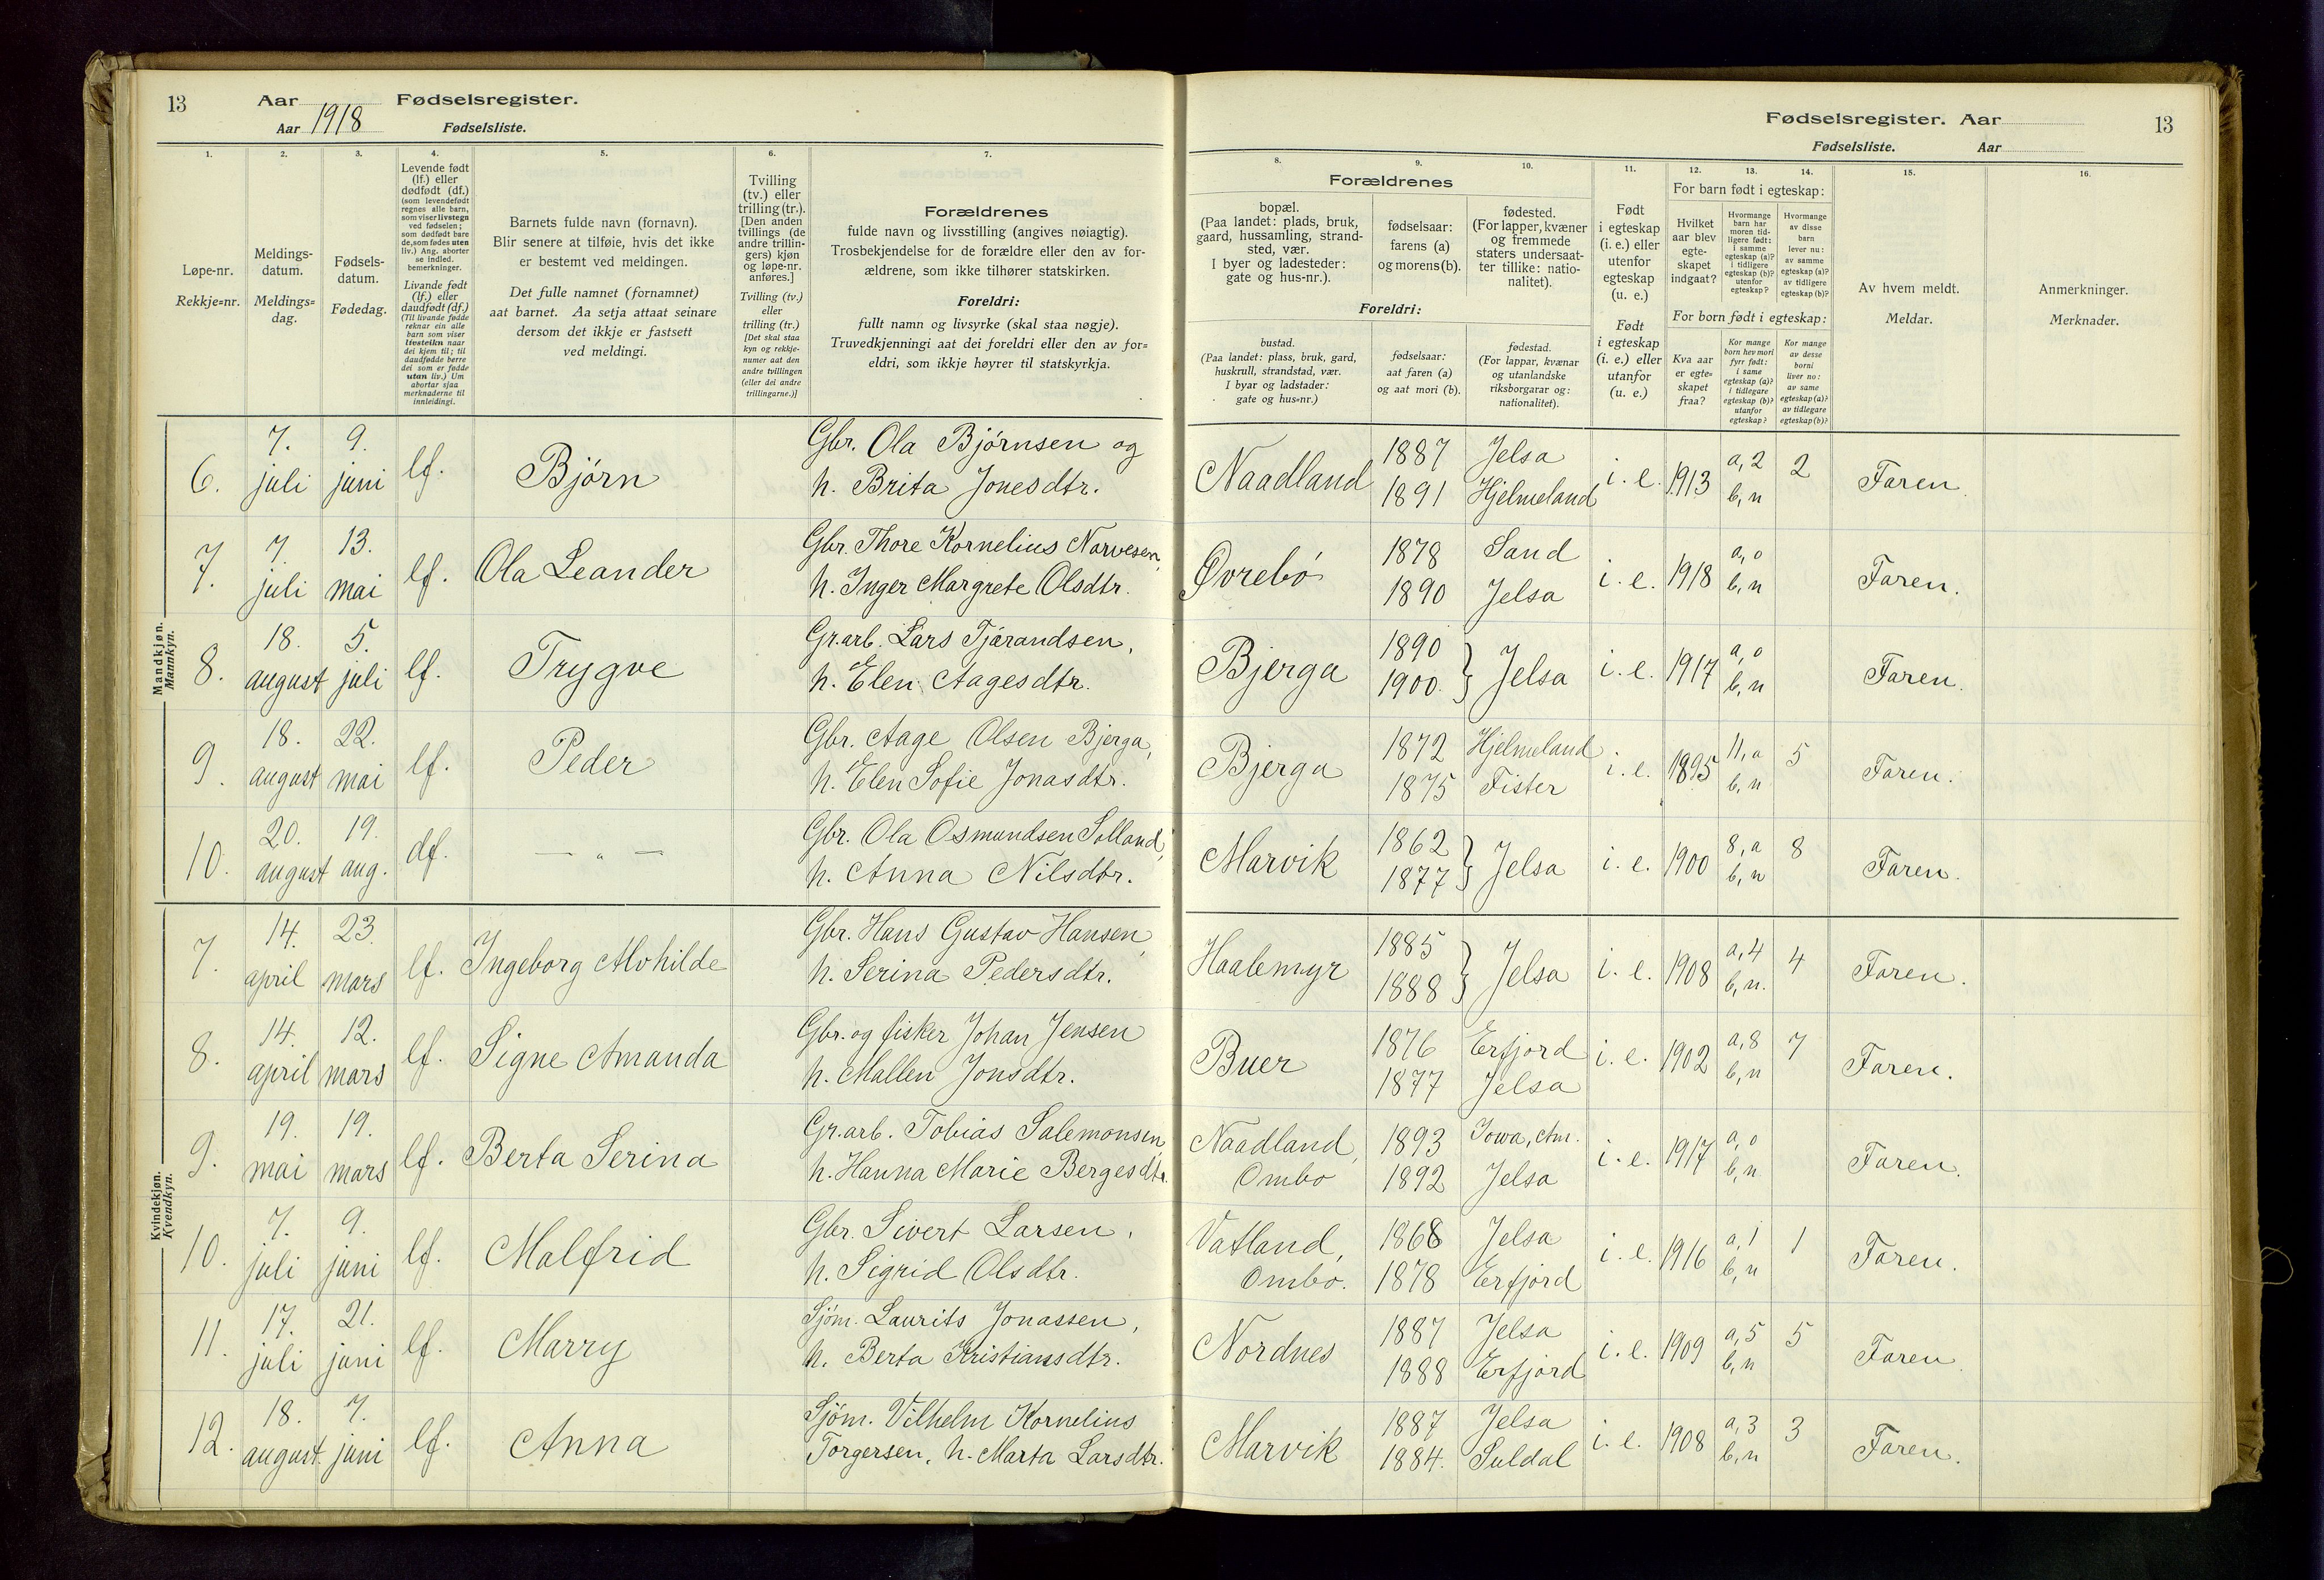 13 Aar Fødselsregister.
Aar 1918 Fødselsliste.
Fødselsregister. Aar 13
Fødselsliste. Aar
1.
Løpe-nr.
Rekkje=nr.
2.
Meldings-
datum.
Meldings=
dag.
3.
Fødsels-
datum.
Fødedag.
4.
Levende født
(lf.) eller
dødfødt (df.)
(som levendefødt
regnes alle barn,
som viser livstegn
ved fødselen;
som dødfødt bare
de, som fødes uten
liv.) Ang. aborter
se indled.
bemerkninger.
Livande født
(lf.) eller
daudfødt (df.)
(Til livande fødde
reknar ein alle
barn som viser
livsteikn naar
dei kjem til; til
daudfødde berre
dei som er fødde
utan liv.) Um
abortar sjaa
merknaderne til
innleidingi.
5.
Barnets fulde navn (fornavn).
Blir senere at tilføie, hvis det ikke
er bestemt ved meldingen.
Det fulle namnet (fornamnet)
aat barnet. Aa setja attaat seinare
dersom det ikkje er fastsett
ved meldingi.
6.
Tvilling
(tv.) eller
trilling (tr.).
[Den anden
tvillings (de
andre trillin-
gers) kjøn
og løpe-nr.
anføres.]
Tvilling (tv.)
eller
trilling (tr.)
[Det skal staa
kyn og rekkje-
numer aat den
andre tvillingen
(eller dei andre
trillingarne.)]
7.
Forældrenes
fulde navn og livsstilling (angives nøiagtig).
Trosbekjendelse for de forældre eller den av for-
ældrene, som ikke tilhører statskirken.
Foreldri:
fullt namn og livsyrke (skal staa nøgje).
Truvedkjenningi aat dei foreldri eller den av for=
eldri, som ikkje høyrer til statskyrkja.
8.
Forældrenes
bopæl.
(Paa landet: plads, bruk,
gaard, hussamling, strand-
sted, vær.
I byer og ladesteder:
gate og hus-nr.).
Foreldri:
bustad.
(Paa landet: plass, bruk, gard,
huskrull, strandstad, vær.
I byar og ladstader:
gate og hus=nr.)
9.
fødselsaar:
farens (a)
og morens (b).
fødselsaar:
aat faren (a)
og aat mori (b).
10.
fødested.
(For lapper, kvæner
og fremmede
staters undersaat-
ter tillike: natio-
nalitet).
fødestad.
(For lappar, kvænar
og utanlandske
riksborgarar og:
nationalitet).
11.
Født
i egteskap
(i. e.) eller
utenfor
egteskap
(u. e.)
Født
i egteskap
(i. e.) eller
utanfor
(u. e.)
For barn født i egteskap:
12.
Hvilket
aar blev
egte-
skapet
indgaat?
For born født i egteskap:
Kva aar
er egte=
skapet
fraa?
13.
Hvormange
barn har
moren tid-
ligere født:
i samme
egteskap (a)?
i tidligere
egteskap (b)?
utenfor
egteskap?
Kor mange
born hev mori
fyrr født:
i same
egteskap (a)?
i tidlegare
egteskap (b)?
utanfor
egteskap?
14.
Hvormange
av disse
barn
lever nu:
av samme
egteskap (a)?
av tidligere
egteskap (b)?
Kor mange
av desse
borni
liver no:
av same
egteskap (a)?
av tidlegare
egteskap (b)?
15.
Av hvem meldt.
Meldar.
16.
Anmerkninger.
Merknader.
Mandkjøn.
Mannkyn.
6. 7. juli 9. juni lf. Bjørn Gbr. Ola Bjørnsen og
h. Brita Jonesdtr. Naadland 1887 1891 Jelsa Hjelmeland i. e. 1913 a, 2 b, n 2 Faren
7. 7. juli 13. mai lf. Ola Leander Gbr. Thore Kornelius Narvesen,
h. Inger Margrete Olsdtr. Øvrebø 1878 1890 Sand Jelsa i. e. 1918 a, 0 b, n Faren.
8. 18. august 5. juli lf. Trygve Gr.arb. Lars Tjærandsen,
h. Elen Aagesdtr. Bjerga 1890 1900 Jelsa i. e. 1917 a, 0 b, n Faren.
9. 18. august 22. mai lf. Peder Gbr. Aage Olsen Bjerga,
h. Elen Sofie Jonasdtr. Bjerga 1872 1875 Hjelmeland Fister i. e. 1895 11, a b, n 5 Faren.
10. 20. august 19. aug. df. — „ — Gbr. Ola Osmundsen Solland,
h. Anna Nilsdtr. Marvik 1862 1877 Jelsa i. e. 1900 8, a b, n 8 Faren.
Kvindekjøn.
Kvendkyn.
7. 14. april 23. mars lf. Ingeborg Alvhilde Gbr. Hans Gustav Hansen,
h. Serina Pedersdtr. Haalemyr 1885 1888 Jelsa i. e. 1908 a, 4 b, n. 4 Faren.
8. 14. april 12. mars lf. Signe Amanda Gbr. og fisker Johan Jensen
h. Mallen Jonsdtr. Buer 1876 1877 Erfjord Jelsa i. e. 1902 a, 8 b, n 7 Faren.
9. 19. mai 19. mars lf. Berta Serina Gr.arb. Tobias Salemonsen
h. Hanna Marie Bergesdtr. Naadland, Ombo 1893 1892 Iowa, Am. Jelsa i. e. 1917 a, 0 b, n Faren.
10. 7. juli 9. juni lf. Malfrid Gbr. Sivert Larsen,
h. Sigrid Olsdtr. Vatland, Ombo. 1868 1878 Jelsa Erfjord i. e. 1916 a, 1 b, n 1 Faren.
11. 17. juli 21. juni lf. Marry Sjøm. Laurits Jonassen,
h. Berta Kristiansdtr. Nordnes 1887 1888 Jelsa Erfjord i. e. 1909 a, 5 b, n 5 Faren
12. 18. august 7. juni lf. Anna Sjøm. Vilhelm Kornelius
Torgersen, h. Marta Larsdtr. Marvik 1887 1884. Jelsa Suldal i. e. 1908 a, 3 b, n 3 Faren.